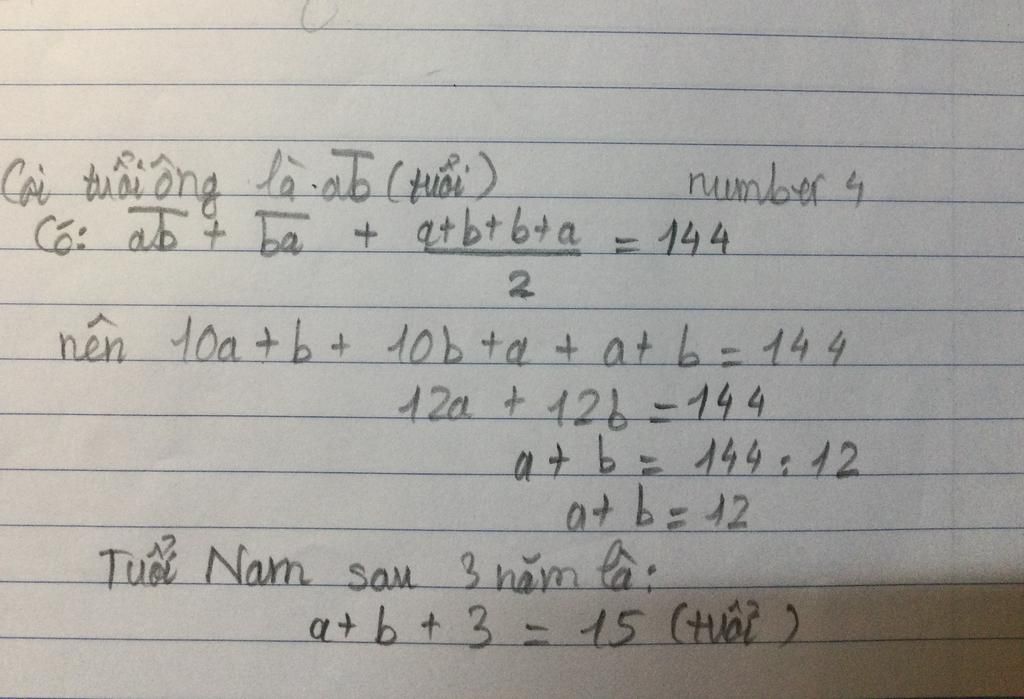 Gọi tuổi ông là \overline{ab} (tuổi) number 4
Có: \overline{ab} + \overline{ba} + \frac{a+b+b+a}{2} = 144
nên 10a + b + 10b + a + a + b = 144
12a + 12b = 144
a + b = 144 : 12
a + b = 12
Tuổi Nam sau 3 năm là:
a + b + 3 = 15 (tuổi)